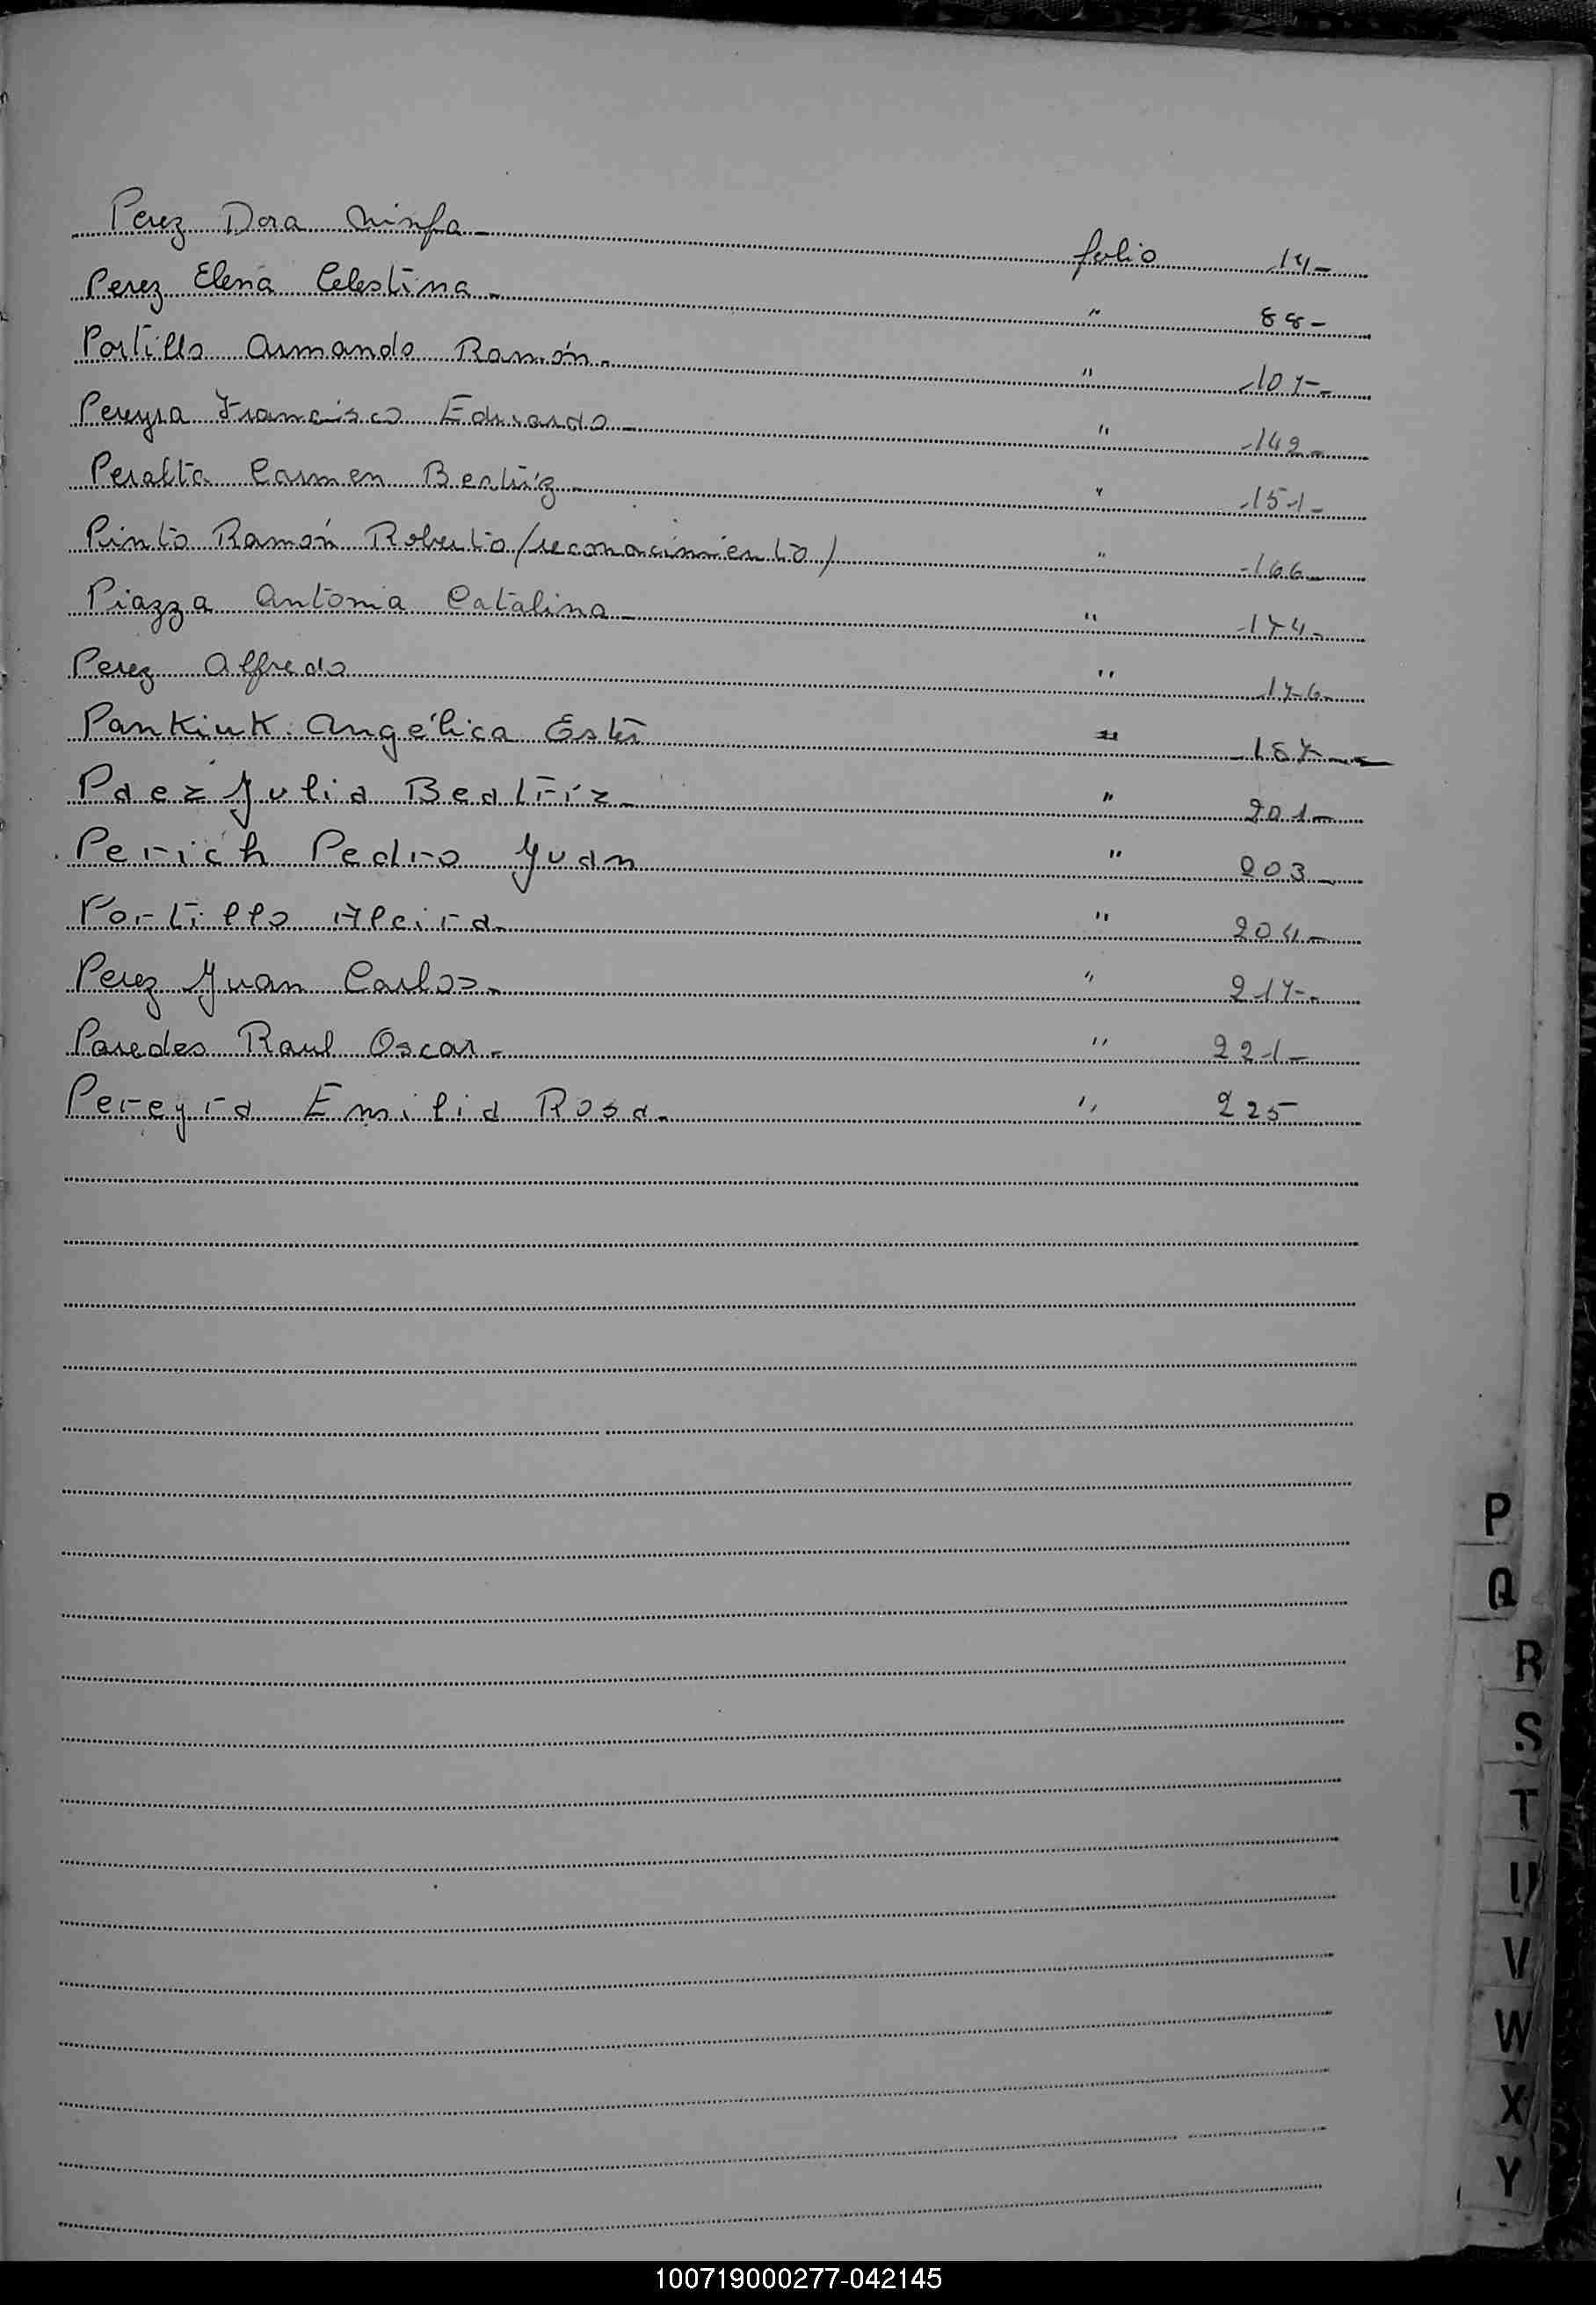 Perez Dora Ninfa - folio 14 -
Perez Elena Celestina - " 88 -
Portillo Armando Ramón - " 107 -
Pereyra Francisco Eduardo - " 142 -
Peralta Carmen Beatriz - " 151 -
Pinto Ramón Roberto /reconocimiento/ " 166
Piazza Antonia Catalina - " 174 -
Perez Alfredo " 176
Pankiuk Angélica Ester " 187 -
Paez Julia Beatríz - " 201 -
Perich Pedro Juan " 203
Portillo Alcira - " 204 -
Perez Juan Carlos - " 217 -
Paredes Raul Oscar - " 221 -
Pereyra Emilia Rosa - " 225
P
Q
R
S
T
U
V
W
X
Y
100719000277-042145